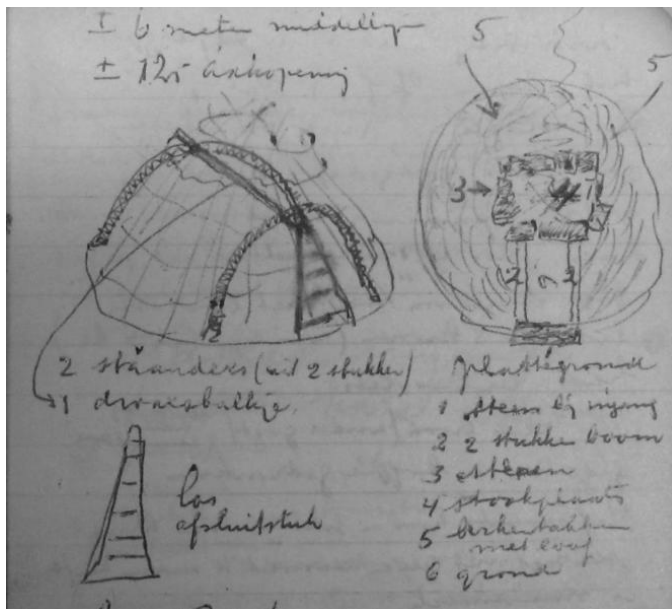 ± 6 meter middellijn
± 125
5
5
3
4
2
2
2
2 ståanders (uit 2 stukken)
1 dwarsbalkje.
los
afsluitstuk
plattegrond
1 steen bij ingang
2 2 stukken boom
3 stenen
4 stookplaats
5 berketakken
met loof
6 grond